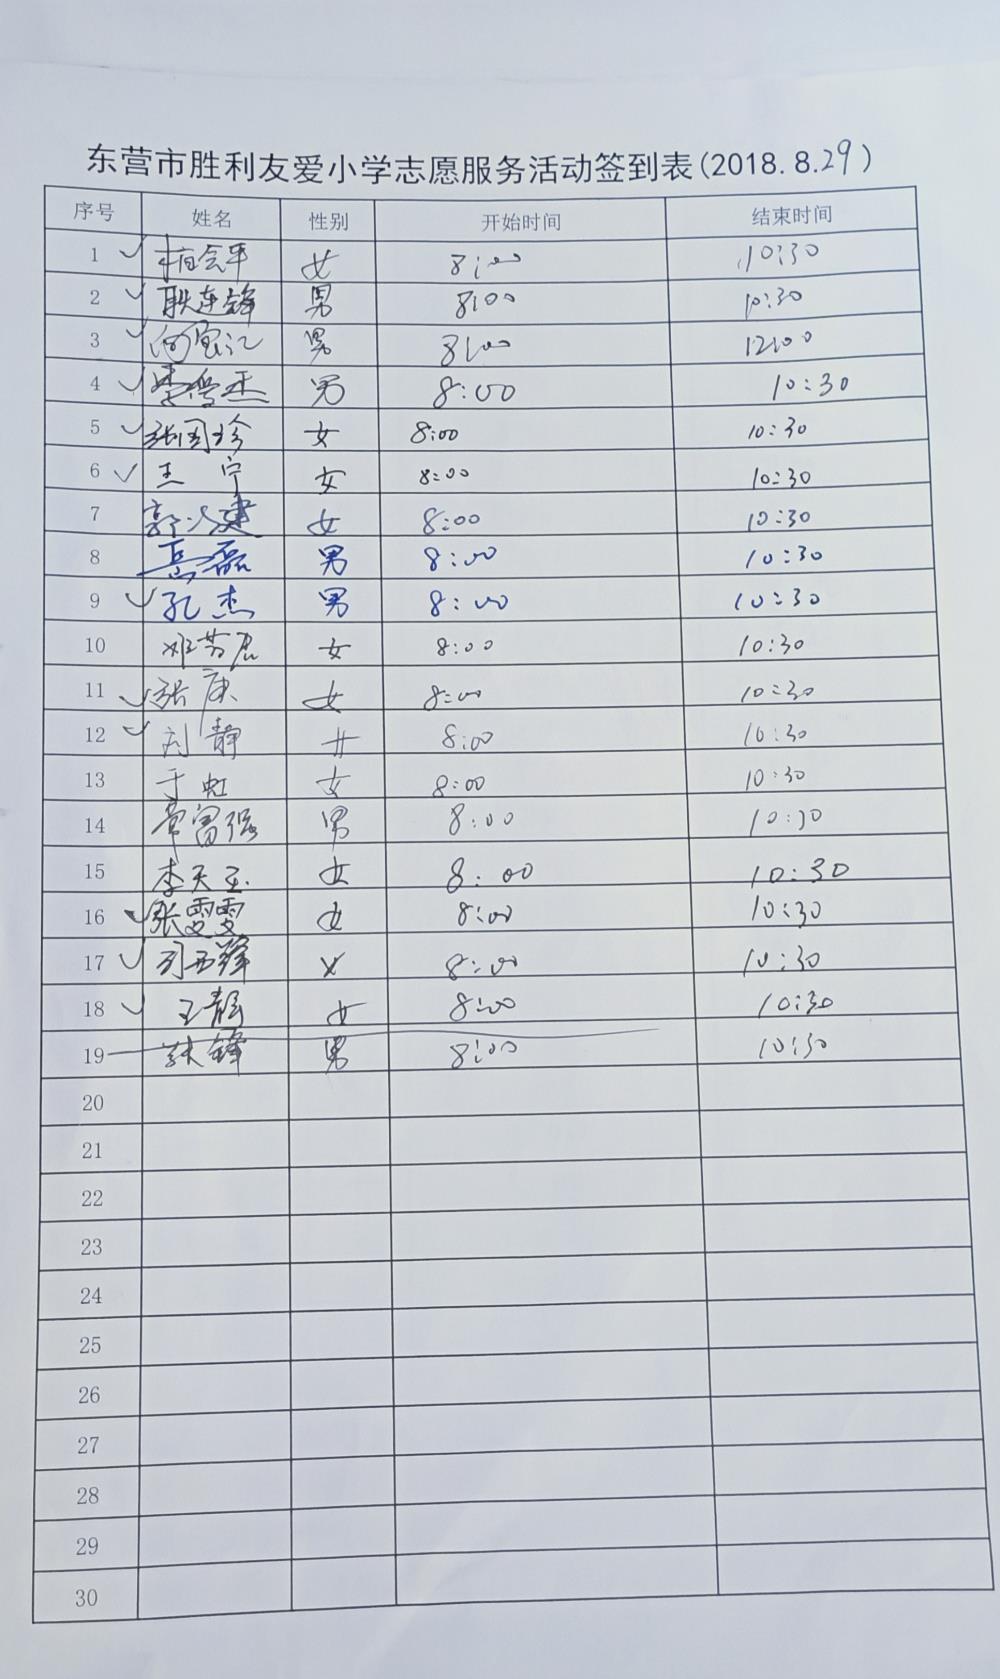 东营市胜利友爱小学志愿服务活动签到表(2018.8.29)
序号 姓名 性别 开始时间 结束时间
1 女 8:00 10:30
2 耿连锋 男 8:00 10:30
3 男 8:00 12:00
4 男 8:00 10:30
5 张国珍 女 8:00 10:30
6 王宁 女 8:00 10:30
7 女 8:00 10:30
8 磊 男 8:00 10:30
9 孔杰 男 8:00 10:30
10 女 8:00 10:30
11 张康 女 8:00 10:30
12 刘静 女 8:00 10:30
13 于虹 女 8:00 10:30
14 常富强 男 8:00 10:30
15 李天玉 女 8:00 10:30
16 张雯雯 女 8:00 10:30
17 女 8:00 10:30
18 王静 女 8:00 10:30
19 锋 男 8:00 10:30
20
21
22
23
24
25
26
27
28
29
30